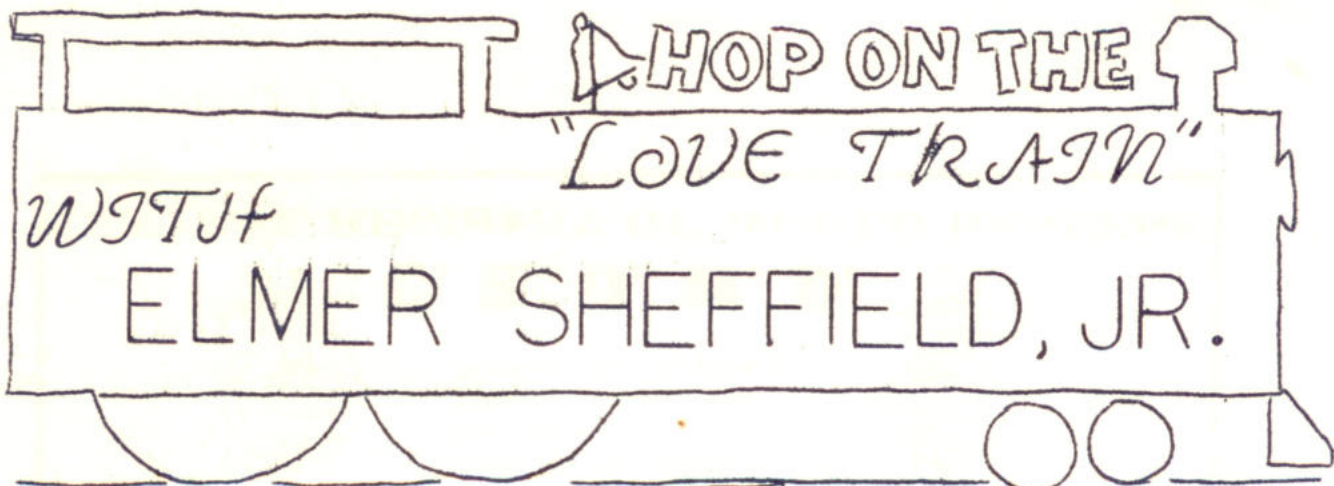 HOP ON THE
"LOVE TRAIN"
WITH
ELMER SHEFFIELD, JR.